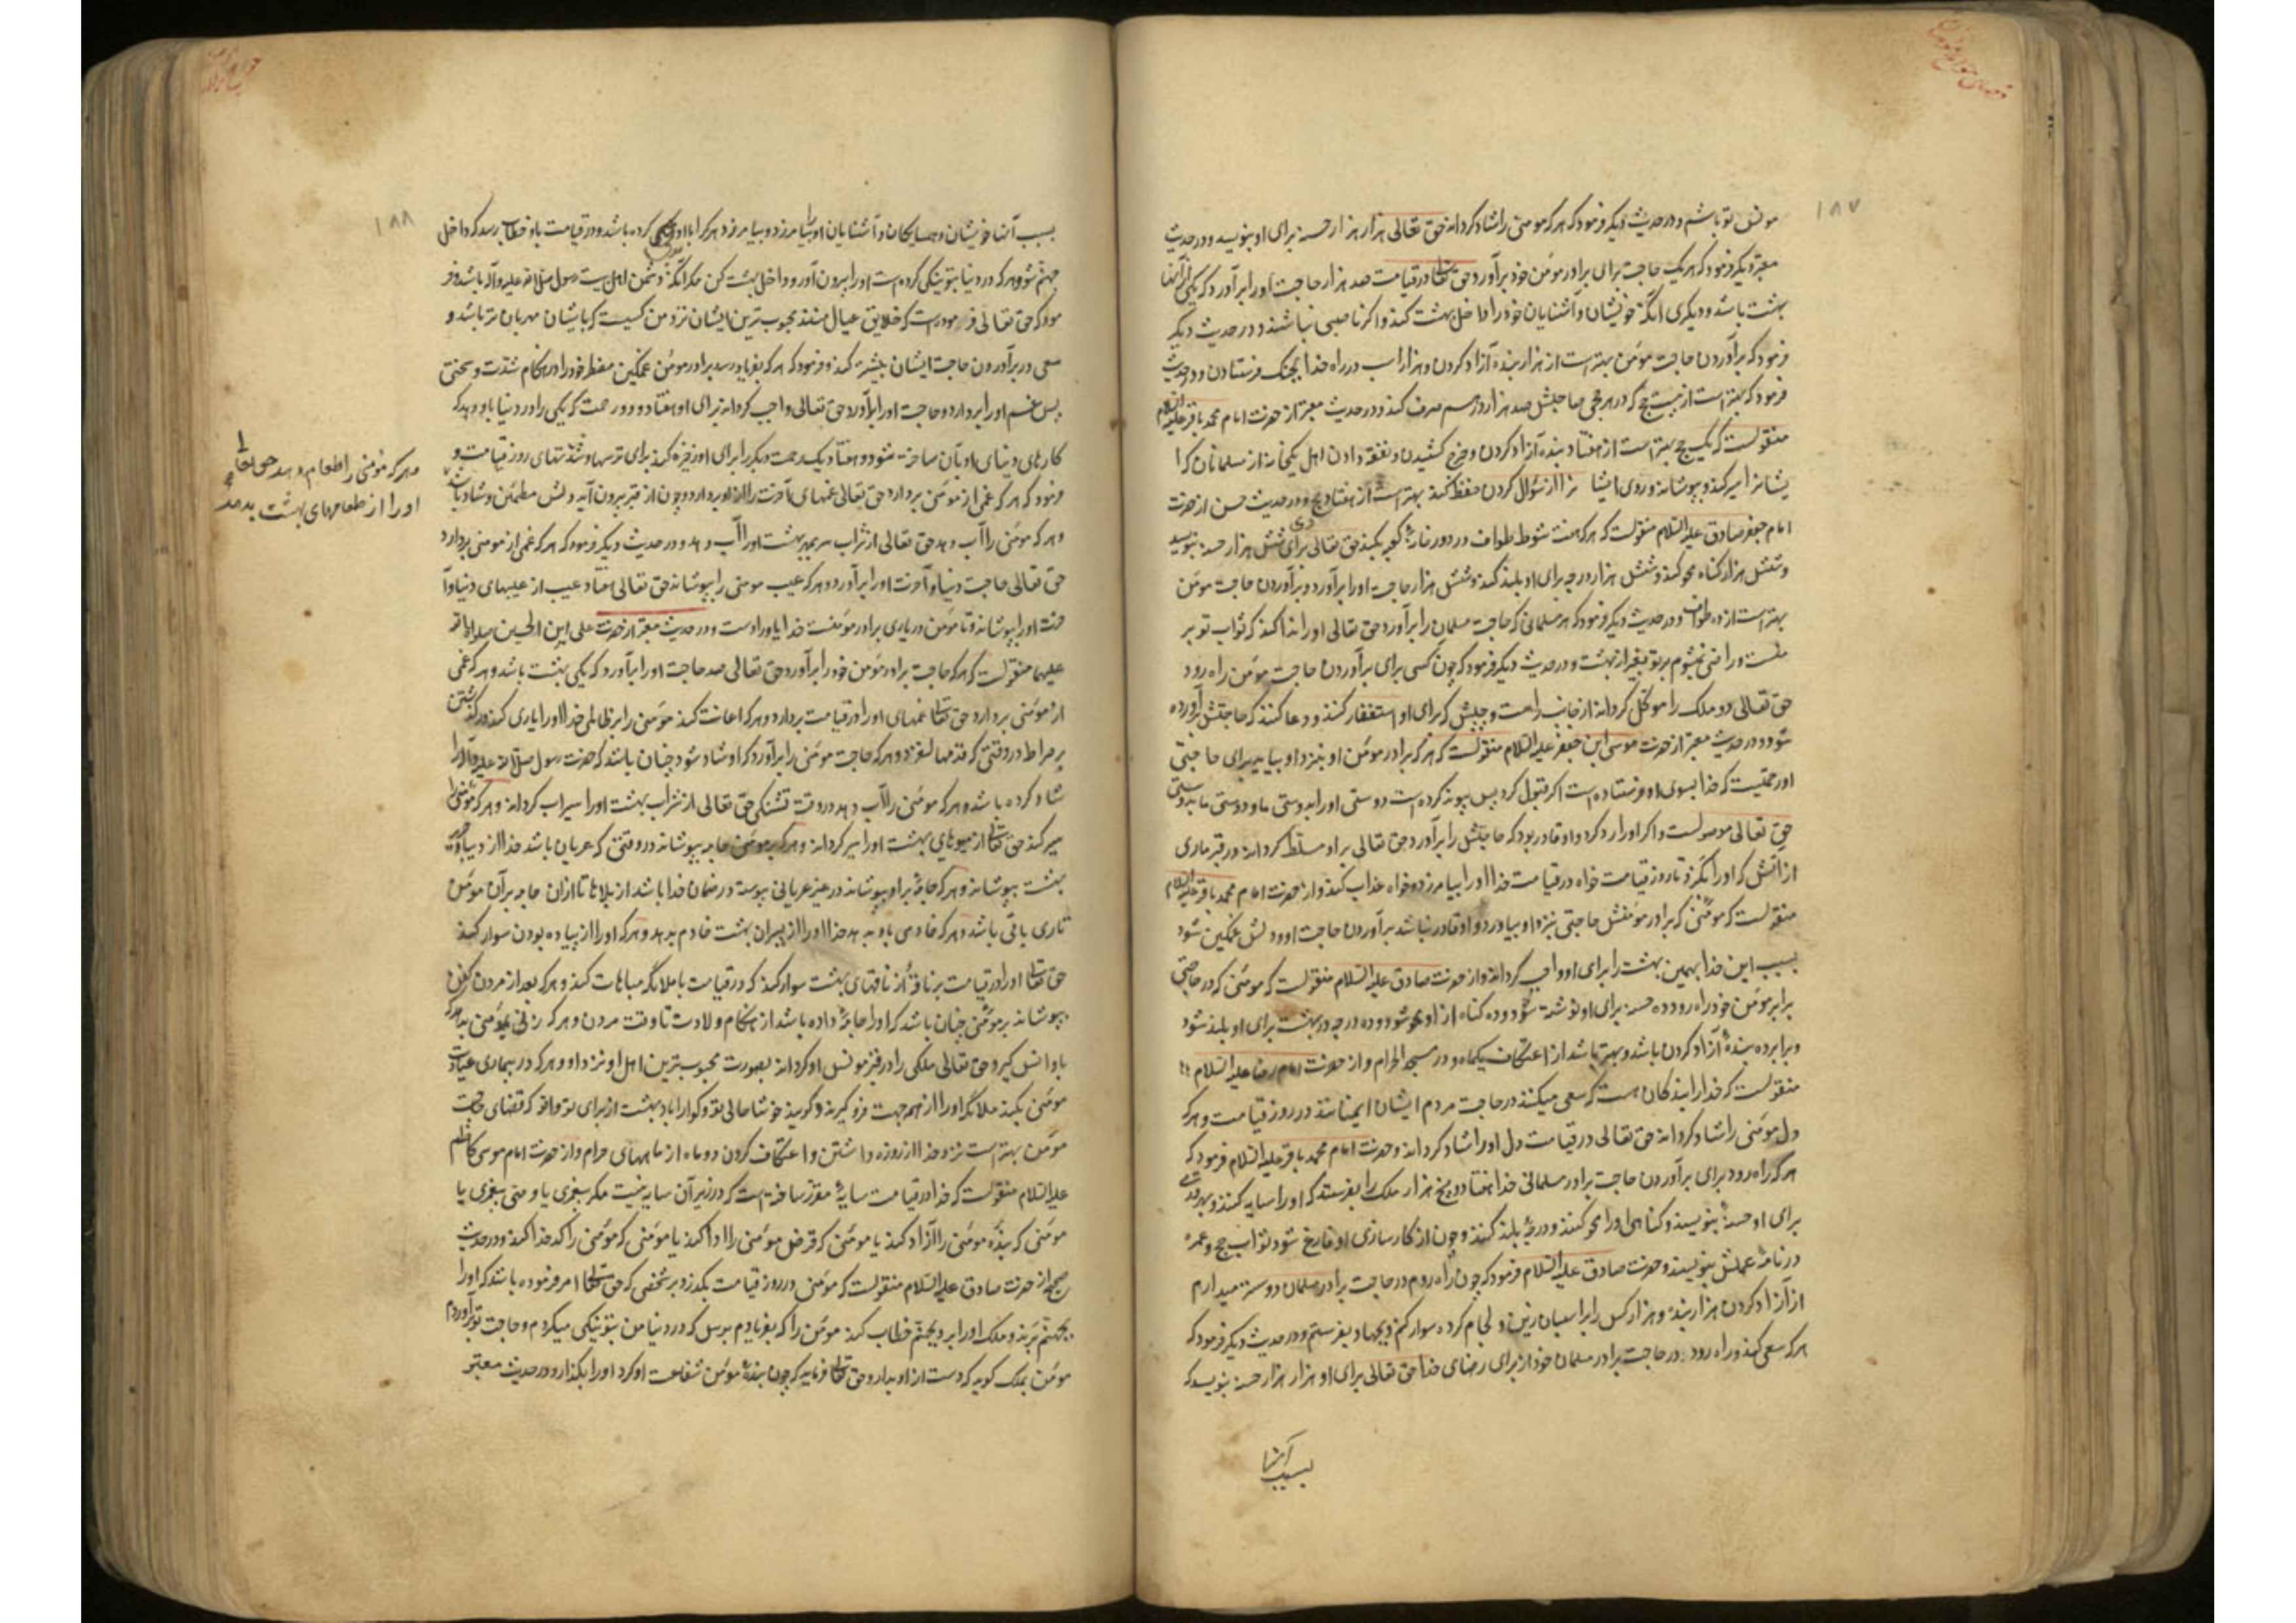 ۱۸۷
مونس تو باشم و در حدیث دیگر فرمود که هر که مومنی را شاد کرداند حق تعالی هزار هزار حسنه برای او بنویسد و در حدیث
معتبر دیگر فرمود که هر یک حاجت برای برادر مؤمن خود برآورد حق تعالی در قیامت صد هزار حاجت او را برآورد که یکی از آنها
بهشت باشد و دیگری آنکه خویشان و آشنایان خود را داخل بهشت کند و اکر ناصبی نباشند و در حدیث دیکر
فرمود که برآوردن حاجت مؤمن بهتر است از هزار بنده آزاد کردن و هزار اسب در راه خدا بجنک فرستادن و در حدیث
فرمود که بهتر است از بیست حج که در هر حجی صاحبش صد هزار درهم صرف کند و در حدیث معتبر از حضرت امام محمد باقر علیه السلام
منقولست که یک حج بهتر است از هفتاد بنده آزاد کردن و خرج کشیدن و نفقه دادن اهل یکخانه از مسلمانان که ا
یشانرا سیر کند و بپوشاند و روی ایشا نرا از سؤال کردن حفظ کند بهتر است از هفتاد حج و در حدیث حسن از حضرت
امام جعفر صادق علیه السلام منقولست که هر که هفت شوط طواف در دور خانهٔ کعبه بکند حق تعالی برای وی شش هزار حسنه بنویسد
و شش هزار کناه محو کند و شش هزار درجه برای او بلند کند و شش هزار حاجت او را برآورد و برآوردن حاجت مؤمن
بهتر است از ده طواف و در حدیث دیکر فرمود که هر مسلمانی که حاجت مسلمان را برآورد حق تعالی او را ندا کند که ثواب تو بر
منست و راضی نمیشوم بر تو بغیر از بهشت و در حدیث دیکر فرمود که چون کسی برای برآوردن حاجت مؤمن راه رود
حق تعالی دو ملک را موکل کرداند از جانب راست و چپش که برای او استغفار کنند و دعا کنند که حاجتش برآورده
شود و در حدیث معتبر از حضرت موسی ابن جعفر علیه السلام منقولست که هر که برادر مؤمن او بنزد او بیاید برای حاجتی
او رحمتیست که خدا بسوی او فرستاده است اکر قبول کرد پس پیوند کرده است دوستی او را بدوستی ما و دوستی ما بدوستی
حق تعالی موصولست و اکر او را رد کرد و او قادر بود که حاجتش را برآورد حق تعالی بر او مسلط کرداند در قبر ماری
از آتش که او را بگزد تا روز قیامت خواه در قیامت خدا او را بیامرزد و خواه عذاب کند و از حضرت امام محمد باقر علیه السلام
منقولست که مومنی که برادر مؤمنش حاجتی بنزد او بیاورد و او قادر نباشد بر آوردن حاجت او و دلش غمکین شود
بسبب این خدا بهمین بهشت را برای او واجب کرداند و از حضرت صادق علیه السلام منقولست که مومنی که در حاجتی
برابر مؤمن خود راه رود ده حسنه برای او نوشته شود و ده کناه از او محو شود و ده درجه در بهشت برای او بلند شود
و برابر ده بندهٔ آزاد کردن باشد و بهتر باشد از اعتکاف یکماه در مسجد الحرام و از حضرت امام رضا علیه السلام
منقولست که خدا را بندکان هست که سعی میکنند در حاجت مردم ایشان ایمنانند در روز قیامت و هر که
دل مومنی را شاد کرداند حق تعالی در قیامت دل او را شاد کرداند و حضرت امام محمد باقر علیه السلام فرمود که
هر که راه رود برای برآوردن حاجت برادر مسلمانی خدا هفتاد و پنج هزار ملک را بفرستد که او را سایه کنند و بهر قدمی
برای او حسنهٔ بنویسند و کناهی او را محو کنند و درجهٔ بلند کنند و چون از کار سازی او فارغ شود ثواب حج و عمره
در نامهٔ عملش بنویسند و حضرت صادق علیه السلام فرمود که چون راه روم در حاجت برادر مسلمان دوستر میدارم
از آزاد کردن هزار بنده و هزار کس را بر اسبان زین و لجام کرده سوار کنم و بجهاد بفرستم و در حدیث دیکر فرمود که
هر که سعی کند و راه رود در حاجت برادر مسلمان خود از برای رضای خدا حق تعالی برای او هزار هزار حسنه بنویسد که
بسبب آنها
۱۸۸
بسبب آنها خویشان و همسایکان و آشنایان او را بیامرزد و بیامرزد هر کرا با او نیکی کرده باشد و در قیامت باو خطاب رسد که داخل
جهنم شو و هر که در دنیا بتو نیکی کرده است او را بیرون آور و داخل بهشت کن مکر آنکه دشمن اهل بیت رسول صلی الله علیه و آله باشد و فر
مود که حق تعالی فرموده است که خلایق عیال منند محبوب ترین ایشان نزد من کسیست که بایشان مهربان تر باشد و
سعی در برآوردن حاجت ایشان بیشتر کند و فرمود که هر که بفریاد رسد برادر مؤمن غمکین مضطر خود را در هنکام شدت و سختی
پس غم او را بردارد و حاجت او را برآورد حق تعالی واجب کرداند برای او هفتاد و دو رحمت که یکی را در دنیا باو دهد که
کارهای دنیای او بآن ساخته شود و هفتاد و یک رحمت دیکر را برای او ذخیره کند برای ترسها و شدتهای روز قیامت و
فرمود که هر که غمی از مؤمنی بردارد حق تعالی غمهای آخرت را از او بردارد و چون از قبر بیرون آید دلش مطمئن و شاد باشد
و هر که مومنی را آب دهد حق تعالی از شراب سر بمهر بهشت او را آب دهد و در حدیث دیکر فرمود که هر که غمی از مومنی بردارد
حق تعالی حاجت دنیا و آخرت او را برآورد و هر که عیب مومنی را بپوشاند حق تعالی هفتاد عیب از عیبهای دنیا و آ
خرت او را بپوشاند و تا مؤمن در یاری برادر مؤمنست خدا یاور اوست و در حدیث معتبر از حضرت علی ابن الحسین صلوات الله
علیهما منقولست که هر که حاجت برادر مؤمن خود را برآورد حق تعالی صد حاجت او را برآورد که یکی بهشت باشد و هر که غمی
از مؤمنی بردارد حق تعالی غمهای او را در قیامت بردارد و هر که اعانت کند مؤمنی را بر ظالمی خدا او را یاری کند در کذشتن
بر صراط در وقتی که قدمها لغزد و هر که حاجت مؤمنی را برآورد که او شاد شود چنان باشد که حضرت رسول صلی الله علیه و آله را
شاد کرده باشد و هر که مومنی را آب دهد در وقت تشنکی حق تعالی از شراب بهشت او را سیراب کرداند و هر که مؤمنی را
سیر کند حق تعالی از میوهای بهشت او را سیر کرداند و هر که بر مؤمنی جامه بپوشاند در وقتی که عریان باشد خدا از دیبا و حریر
بهشت بپوشاند و هر که جامهٔ بر او بپوشاند در غیر عریانی پیوسته در ضمان خدا باشد از بلاها تا از ان جامه بر آن مؤمن
تاری باقی باشد و هر که خادمی باو بدهد خدا او را از پسران بهشت خادم بدهد و هر که او را از پیاده بودن سوار کند
حق تعالی او را در قیامت بر ناقهٔ از ناقهای بهشت سوار کند که در قیامت با ملائکه مباهات کند و هر که بعد از مردن کفن
بپوشاند بر مؤمنی چنان باشد که او را جامهٔ داده باشد از هنکام ولادت تا وقت مردن و هر که زنی بمؤمنی بدهد که
باو انس کیرد حق تعالی ملکی را در قبر مونس او کرداند بصورت محبوب ترین اهل او نزد او و هر که در بیماری عیادت
مومنی بکند ملائکه او را از همه جهت فرو کیرند و کویند خوشا حالی تو و کوارا باد بهشت از برای تو و الله که قضای حاجت
مؤمن بهتر است نزد خدا از روزه داشتن و اعتکاف کردن دو ماه از ماههای حرام و از حضرت امام موسی کاظم
علیه السلام منقولست که خدا در قیامت سایهٔ مقرر ساخته است که در زیر آن سایه نیست مکر پیغمبری یا وصی پیغمبری یا
مومنی که بندهٔ مؤمنی را آزاد کند یا مومنی که قرض مومنی را ادا کند یا مؤمنی که مؤمنی را کدخدا کند و در حدیث
صحیح از حضرت صادق علیه السلام منقولست که مؤمنی در روز قیامت بگذرد بر شخصی که حق تعالی امر فرموده باشد که او را
بجهنم برند و ملک او را برد بجهنم خطاب کند مومن را که بفریادم برس که در دنیا من بتو نیکی میکردم و حاجت تو برآوردم
مؤمن بملک کوید که دست از او بدار و حق تعالی فرماید که چون بندهٔ مؤمن شفاعت او کرد او را بگذار و در حدیث معتبر
و هر که مؤمنی را طعام دهد حق تعالی
او را از طعامهای بهشت بدهد